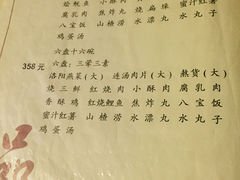 烩鱿鱼 小酥肉
腐乳肉 焦炸丸 烧扁垛 蜜汁红薯
八宝饭 山楂涝 水漂丸 水丸子
鸡蛋汤
六盘十六碗
358元 六盘:三荤三素
洛阳燕菜(大) 连汤肉片(大) 熬货(大)
烧三鲜 红烧肉 小酥肉 腐乳肉
香酥鸡 红烧鲤鱼 焦炸丸 八宝饭
蜜汁红薯 山楂涝 水漂丸 水丸子
鸡蛋汤